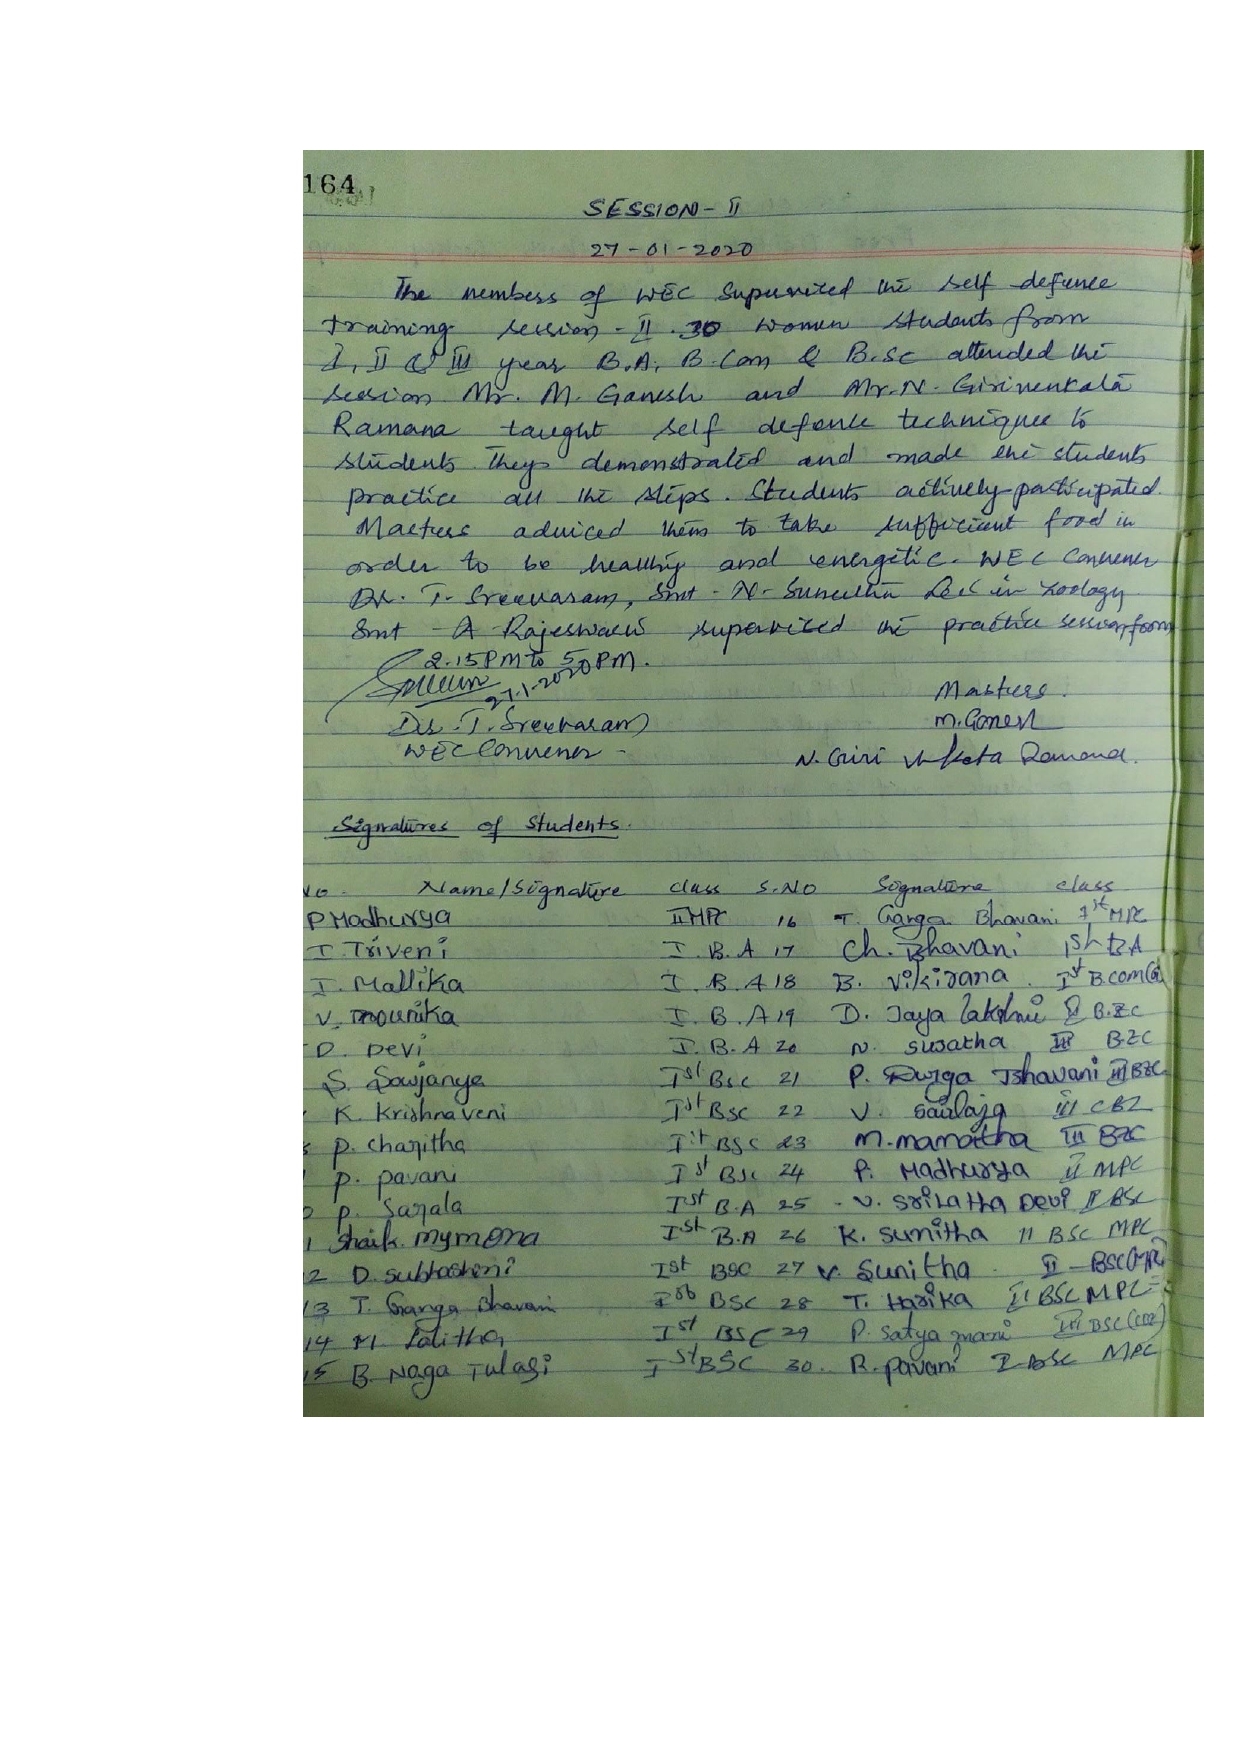 164
SESSION - II
27-01-2020
The members of WEC Supervised the self defence
training session - II. 30 women students from
I, II & III year B.A, B.Com & B.Sc attended the
session Mr. M. Ganesh and Mr. N. Girivenkata
Ramana taught self defence techniques to
students they demonstrated and made the students
practice all the steps. Students actively participated.
Masters adviced them to take sufficient food in
order to be healthy and energetic. WEC Convener
Dr. T. Sreevaram, Smt - N. Suneetha Lec in Zoology
Smt - A Rajeswari supervised the practice session from
2.15PM to 5PM.
27.1.2020
Masters.
Dr. T. Sreevaram
M. Ganesh
WEC Convener -
N. Giri Venkata Ramana.
Signatures of Students.
No. Name/Signature class S.NO Signature class
P Madhurya II MPC 16 T. Ganga Bhavani 1st MPC
T. Triveni I. B.A 17 Ch. Bhavani 1st BA
I. Mallika I. B.A 18 B. Vikirana Ist B.com(G)
V. Mounika I. B.A 19 D. Jaya lakshmi B.ZC
D. Devi I. B.A 20 N. Swatha III BZC
S. Sowjanya Ist Bsc 21 P. Durga Bhavani III BZC
K. Krishnaveni Ist Bsc 22 V. Sailaja III CBZ
P. Charitha Ist BSC 23 M. Mamatha III BZC
P. Pavani Ist Bsc 24 P. Madhurya II MPC
P. Sarala Ist B.A 25 - V. Srilatha Devi II BSc
1 Shaik. Mymona Ist B.A 26 K. Sumitha II BSC MPC
2 D. Subhashini Ist BSC 27 V. Sunitha II - BSC(MPC)
13 T. Ganga Bhavani Ist BSC 28 T. Harika II BSC MPC
14 M Lalitha Ist BSC 29 P. Satya mani III BSC (CBZ)
15 B. Naga Tulasi Ist BSC 30. R. Pavani I BSC MPC